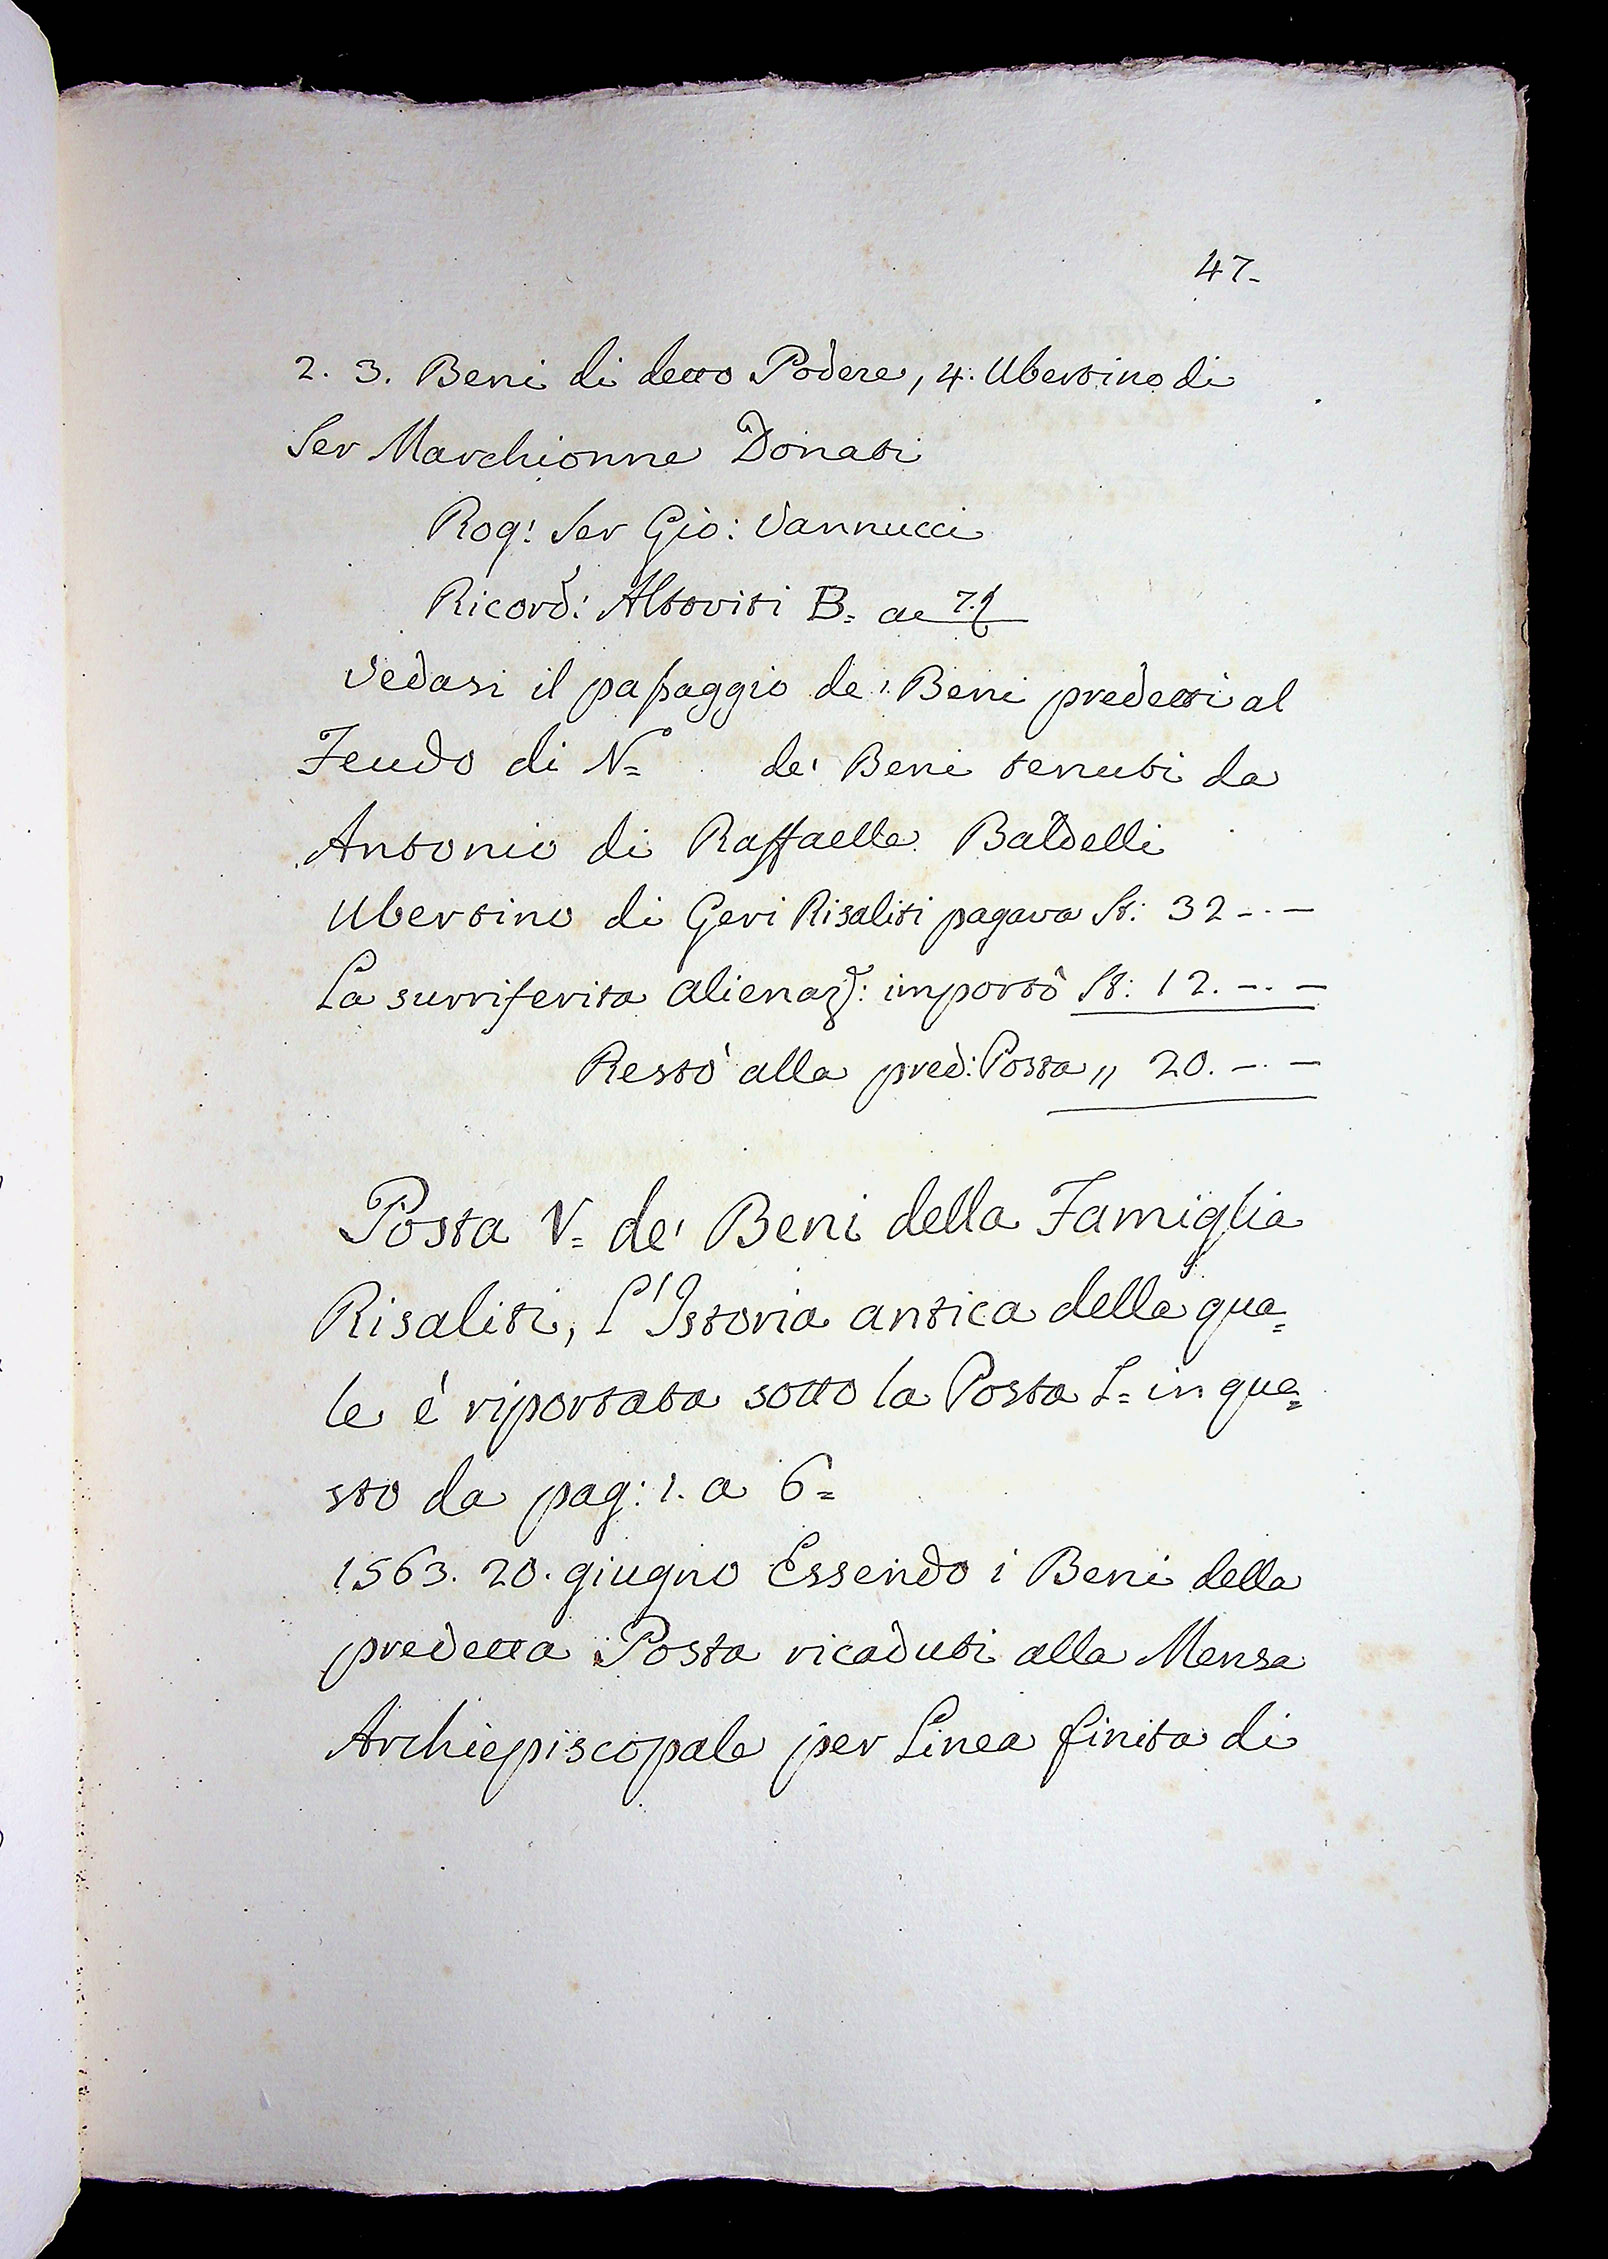 47.
2. 3. Beni di detto Podere, 4. Ubertino di
Ser Marchionne Donati
Rog: Ser Gio: Vannucci
Ricord: Altoviti B= ac
Vedasi il passaggio de' Beni predetti al
Feudo di N° de' Beni tenuti da
Antonio di Raffaelle Baldelli
Ubertino di Geri Risaliti pagava St: 32 -.-
La surriferita alienaz: importò St: 12. -.-
Restò alla pred: Posta „ 20. -.-
Posta V= de' Beni della Famiglia
Risaliti, l'Istoria antica della qua=
le è riportata sotto la Posta I= in que=
sto da pag: 1. a 6=
1563. 20. giugno Essendo i Beni della
predetta Posta ricaduti alla Mensa
Archiepiscopale per Linea finita di